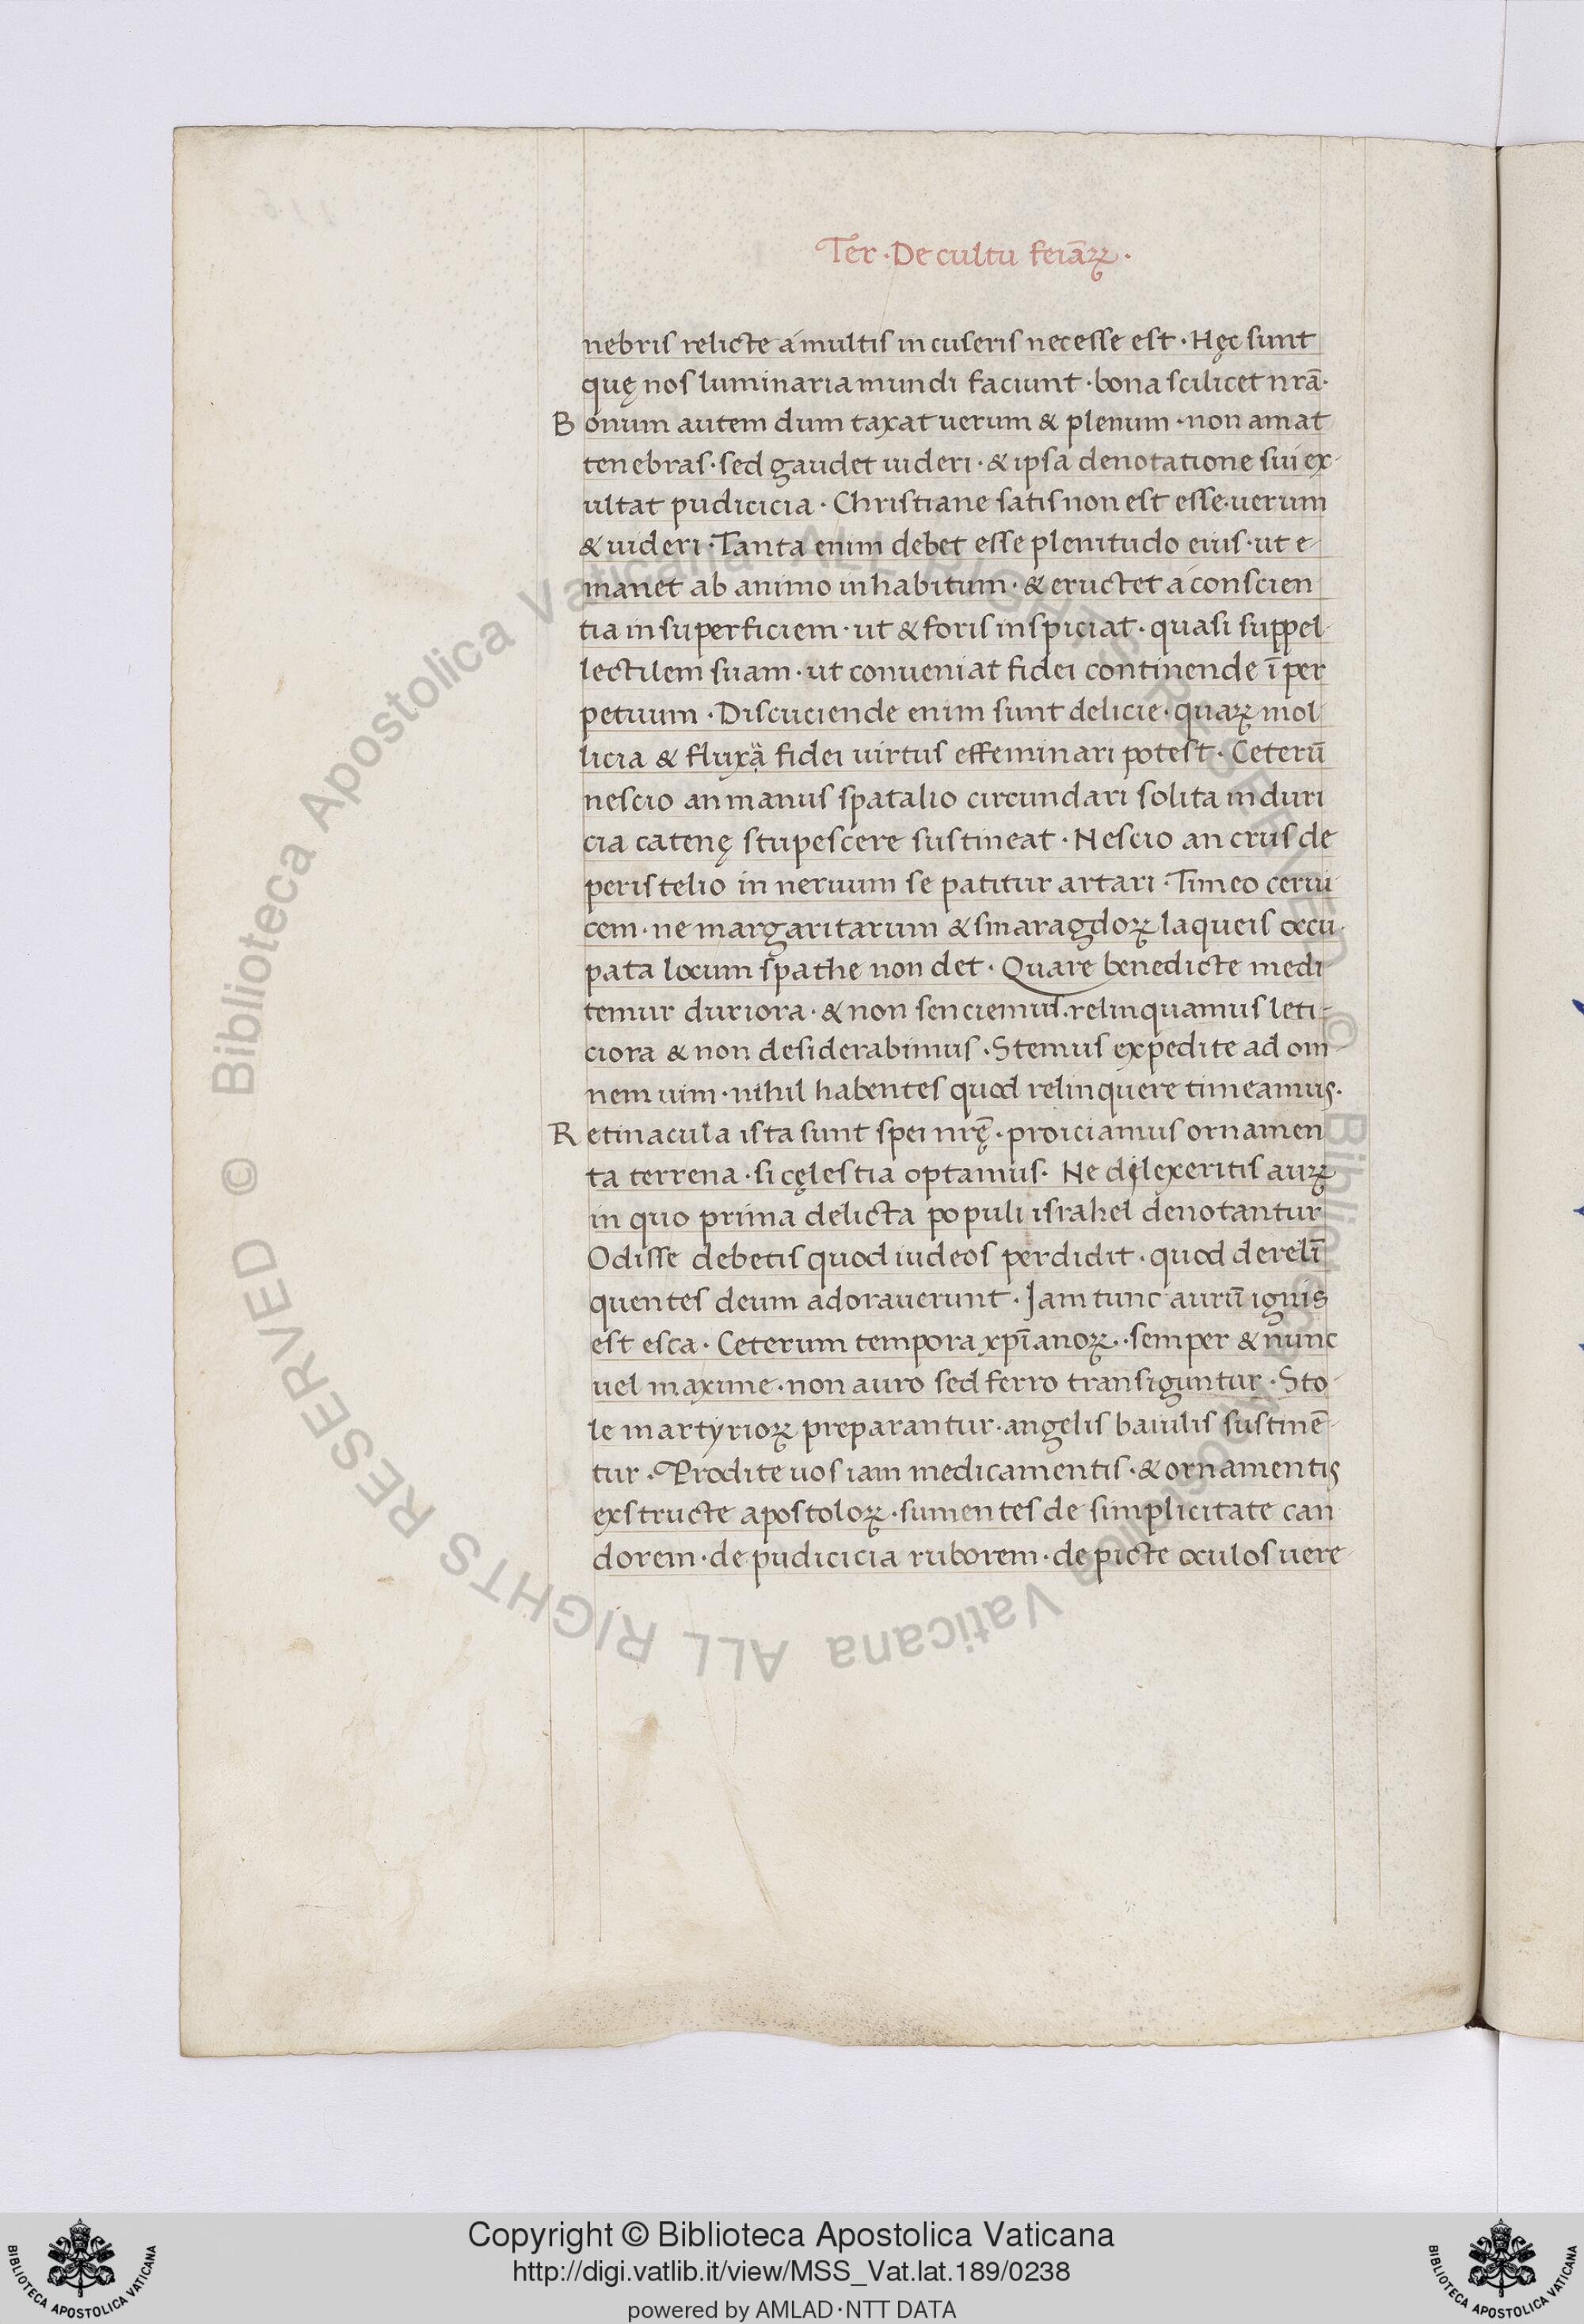 Ter · De cultu feīāꝝ ·
nebris relicte á multis in cuseris necesse est · Hęc sunt
quę nos luminaria mundi faciunt · bona scilicet nrā ·
Bonum autem dum taxat uerum & plenum · non amat
tenebras · sed gaudet uideri · & ipsa denotatione sui ex-
ultat pudicicia · Christiane satis non est esse · uerum
& uideri · Tanta enim debet esse plenitudo eius · ut e-
manet ab animo in habitum · & eructet á conscien
tia in superficiem · ut & foris inspiciat · quasi suppel-
lectilem suam · ut conueniat fidei continende ī per
petuum · Discuciende enim sunt delicie · quaꝝ mol
licia & fluxa fidei uirtus effeminari potest · Ceterū
nescio an manus spatalio circundari solita in duri
cia catenę stupescere sustineat · Nescio an crus de
peristelio in neruum se patitur artari · Timeo cerui
cem · ne margaritarum & smaragdoꝝ laqueis occu-
pata locum spathe non det · Quare benedicte medi
temur duriora · & non senciemus · relinquamus leti-
ciora & non desiderabimus · Stemus expedite ad om-
nem uim · nihil habentes quod relinquere timeamus ·
Retinacula ista sunt spei nrę̄ · proiciamus ornamen
ta terrena · si cęlestia optamus · Ne dilexeritis auꝝ
in quo prima delicta populi israhel denotantur
Odisse debetis quod iudeos perdidit · quod derelī
quentes deum adorauerunt · Jam tunc aurū ignis
est esca · Ceterum tempora xp̄ianoꝝ · semper & nunc
uel maxime · non auro sed ferro transiguntur · Sto-
le martyrioꝝ preparantur · angelis baiulis sustinē-
tur · Prodite uos iam medicamentis · & ornamentis
exstructe apostoloꝝ · sumentes de simplicitate can
dorem · de pudicicia ruborem · depicte oculos uere
© Biblioteca Apostolica Vaticana ALL RIGHTS RESERVED © Biblioteca Apostolica Vaticana ALL RIGHTS RESERVED
Copyright © Biblioteca Apostolica Vaticana
http://digi.vatlib.it/view/MSS_Vat.lat.189/0238
powered by AMLAD·NTT DATA
BIBLIOTECA APOSTOLICA VATICANA
BIBLIOTECA APOSTOLICA VATICANA